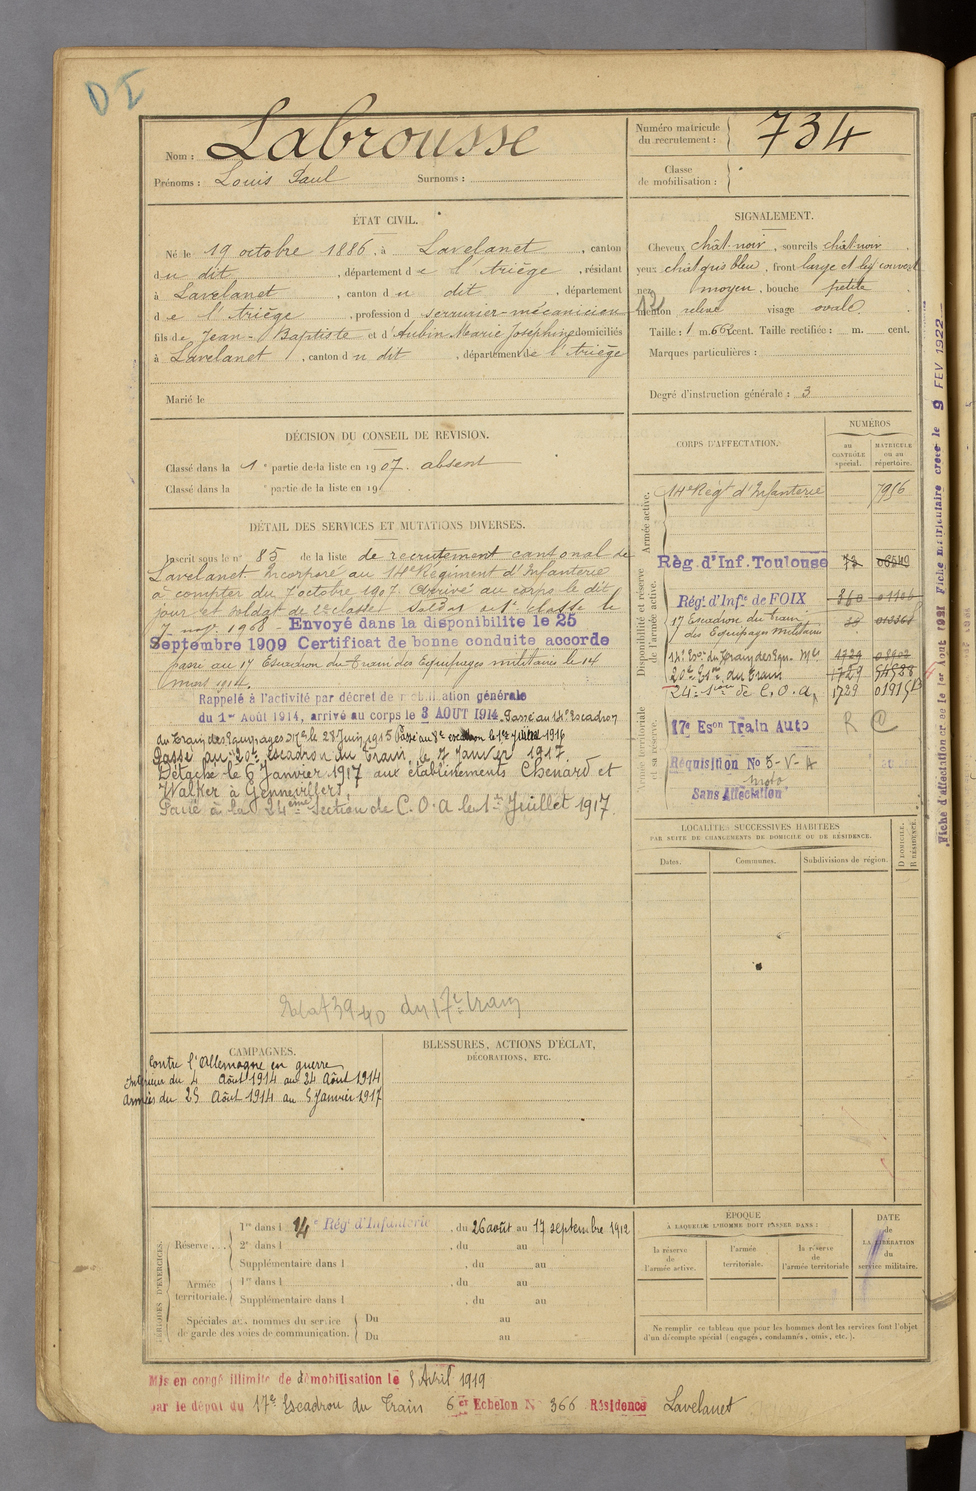 DI
Nom : Labrousse
Prénoms : Louis Paul Surnoms :
Numéro matricule du recrutement : 734
Classe de mobilisation :
ÉTAT CIVIL.
Né le 19 octobre 1886, à Lavelanet, canton
du dit, département de l'Ariège, résidant
à Lavelanet, canton du dit, département
de l'Ariège, profession de serrurier-mécanicien
fils de Jean-Baptiste et d'Aubin Marie Josephine domiciliés
à Lavelanet, canton du dit, département de l'Ariège
Marié le
SIGNALEMENT.
Cheveux chât-noir, sourcils chât-noir
yeux chât gris bleu, front large et couvert
nez moyen, bouche petite
menton relevé visage ovale
Taille : 1 m. 66 cent. Taille rectifiée : m. cent.
Marques particulières :
Degré d'instruction générale : 3
DÉCISION DU CONSEIL DE REVISION.
Classé dans la 1e partie de la liste en 1907. absent
Classé dans la e partie de la liste en 19
DÉTAIL DES SERVICES ET MUTATIONS DIVERSES.
Inscrit sous le no 85 de la liste de recrutement cantonal de
Lavelanet. Incorporé au 14e Régiment d'Infanterie
à compter du 7 octobre 1907. Arrivé au corps le dit
jour et soldat de 2e classe. Soldat de 1e classe le
7 nov. 1908 - Envoyé dans la disponibilité le 25
Septembre 1909 Certificat de bonne conduite accordé
Passé au 17 Escadron du Train des Equipages militaires le 14
mars 1914.
Rappelé à l'activité par décret de mobilisation générale
du 1er Août 1914, arrivé au corps le 3 AOUT 1914. Passé au 14e Escadron
du Train des Equipages Mres le 28 Juin 1915 Passé au 8e escadron le 1er Juillet 1916
Passé au 20e Escadron du Train, le 7 Janvier 1917.
Détaché le 6 Janvier 1917 aux établissements Chenard et
Walker à Gennevilliers.
Passé à la 24ème Section de C.O.A le 1er Juillet 1917.
39-40 du 17e Train
CORPS D'AFFECTATION.
NUMÉROS
au CONTRÔLE spécial.
MATRICULE ou au répertoire.
Armée active.
14e Régt d'Infanterie 7956
Disponibilité et réserve de l'armée active.
Règ. d'Inf. Toulouse
Régt. d'Infie de FOIX
17 Escadron du Train
des Equipages militaires
14e Eson du Train des Equ. Mres 1729
20e Eson du Train 1729
24e Son de C.O.A 1729
Armée territoriale et sa réserve.
17e Eson Train Auto R C
Réquisition No 5-V-A
moto
Sans Affectation
Fiche d'affectation créée le 1er Aout 1921 Fiche matriculaire créée le 9 FEV 1922
LOCALITÉS SUCCESSIVES HABITÉES
PAR SUITE DE CHANGEMENTS DE DOMICILE OU DE RÉSIDENCE.
Dates. Communes. Subdivisions de région. D DOMICILE. R RÉSIDENCE.
CAMPAGNES.
Contre l'Allemagne en guerre
Intérieur du 4 Août 1914 au 24 Août 1914
Armées du 25 Août 1914 au 5 Janvier 1917
BLESSURES, ACTIONS D'ÉCLAT,
DÉCORATIONS, ETC.
PÉRIODES D'EXERCICES.
Réserve
1re dans l 14e Régt d'Infanterie, du 26 août au 17 septembre 1912
2e dans l , du au
Supplémentaire dans l , du au
Armée territoriale.
1re dans l , du au
Supplémentaire dans l , du au
Spéciales aux hommes du service de garde des voies de communication.
Du au
Du au
ÉPOQUE
À LAQUELLE L'HOMME DOIT PASSER DANS :
la réserve de l'armée active.
l'armée territoriale.
la réserve de l'armée territoriale
DATE de LA LIBÉRATION du service militaire.
Ne remplir ce tableau que pour les hommes dont les services font l'objet
d'un décompte spécial (engagés, condamnés, omis, etc.).
Mis en congé illimité de démobilisation le 5 Avril 1919
par le dépôt du 17e Escadron du Train 6e Echelon No 366 Résidence Lavelanet